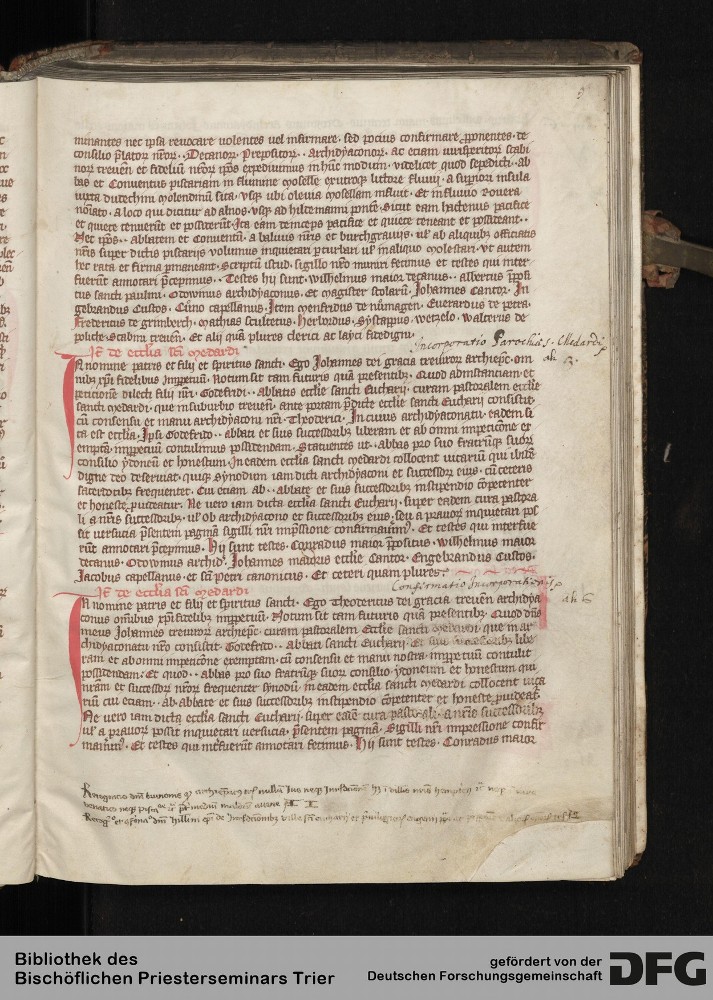 5
minantes nec ipsa revocare volentes vel infirmare. sed pocius confirmare proponentes. de
consilio p̄latoꝝ nr̄oꝝ.. Decanoꝝ. Prepositoꝝ.. archidyaconoꝝ. ac eciam iurisperitoꝝ scabi
noꝝ treueñ et fideliū nr̄oꝝ ip̄os expediuimus in hūc modum. videlicet quod sepedicti. ab
bas et Conventus piscariam in flumine moselle ex utroqꝫ littore fluvij. a supiori insula
iuxta dutechini molendinū sita. vsqꝫ ubi olevia mosellam influit. Et in fluvio Rovera
noīato. a loco qui dicitur ad alnos. vsqꝫ ad hiltemanni ponte. Sicut eam hactenus pacifice
et quiete tenuerūt et possiderūt. Ita eam deinceps pacifice et quiete teneant et possideant.
Nec ip̄os.. abbatem et Conventū. a balivis nr̄is et burchgravijs. vel ab aliquibꝫ officiatis
nr̄is super dictis piscarijs volumus inquietari perturbari vel in aliquo molestari. Ut autem
hec rata et firma permaneant. Scriptū istud. sigillo nr̄o muniri fecimus et testes qui inter
fuerūt annotari p̄cepimus. Testes hij sunt. Wilhelmus maior decanus.. albertus p̄posi
tus sancti paulini. Odowinus archidyaconus. Et magister scolarū. Johannes Cantor. In
gebrandus Custos. Cūno capellanus. Item menfridus de nūmagen. Everardus de petra.
Fredericus de grimberch. mathias scultetus. Herbordus. Systappus. wetzelo. walterus de
polich. Scabini treueñ. Et alij quā plures clerici ac layci fidedigni.
Incorporatio Parochiæ S. Medardi
It̄ de ecclīa sc̄i medardi
In nomine patris et filij et spiritus sancti. Ego Johannes dei gracia treviroꝝ archiep̄c. om
nibꝫ xp̄i fidelibus Inppetuū. Notum sit tam futuris quā presentibꝫ. Quod admistanciam et
peticionem dilecti filij nr̄i. Godefridi.. abbatis ecclīe sancti Eucharij. curam pastoralem ecclīe
sancti medardi. que in suburbio treveri. ante portam p̄dicte ecclīe sancti Eucharij consistit.
cū consensu et manu archidyaconi nr̄i. Theoderici. In cuius archidyaconatu eadem si
ta est ecclīa. Ip̄si Godefrido.. abbati et suis successoribꝫ liberam et ab omni impeticōne ex
emptā. inppetuum contulimus possidendam. Statuentes ut.. abbas pro suo fratrūqꝫ suoꝝ
consilio ydoneū et honestum. In eadem ecclīa sancti medardi collocent vicariū qui ibidē
digne deo deserviat. quiqꝫ Synodum iam dicti archidyaconi et successoꝝ eius. cū ceteris
sacerdotibꝫ frequentet. Cui eciam ab.. abbate et suis successoribꝫ in stipendio cōpetenter
et honeste p̄videatur. Ne vero iam dicta ecclīa sancti Eucharij. super eadem cura pastora
li a nr̄is successoribꝫ. vel ab archidyacono et successoribꝫ eius. seu a pravoꝝ inquietari pos
sit versucia p̄sentem paginā sigilli nr̄i impressione confirmavimꝰ. Et testes qui interfue
rūt annotari p̄cepimus. Hij sunt testes. Conradus maior p̄positus. wilhelmus maior
decanus. Odowinus archid. Johannes maioris ecclīe Cantor. Engebrandus Custos.
Jacobus capellanus. et sc̄i petri canonicus. Et ceteri quam plures.
Confirmatio Incorporationis
It̄ de ecclīa sc̄i medardi
In nomine patris et filij et spiritus sancti. Ego Theodericus dei gracia treueñ archidya
conus omibus xp̄i fidelibꝫ inppetuū. Notum sit tam futuris quā presentibꝫ. Quod dn̄s
meus Johannes treviroꝝ archiep̄c. curam pastoralem Ecclīe sancti medardi. que in ar
chidyaconatu nr̄o consistit. Godefrido.. abbati sancti Eucharij. Et suis successoribꝫ. libe
ram et ab omni impeticōne exemptam. cū consensu et manu nostra. inppetuū contulit
possidendam. Et quod.. abbas pro suo fratrūqꝫ suoꝝ consilio. ydoneum et honestum qui
nr̄am. et successoꝝ nr̄oꝝ frequentet synodū. in eadem ecclīa sancti medardi collocent vica
riū cui eciam. ab. abbate et suis successoribꝫ in stipendio cōpetenter et honeste p̄videat̄.
Ne vero iam dicta ecclīa sancti Eucharij. super eadē cura pastorali. a nr̄is successoribꝫ
vel a pravoꝝ possit inquietari versucia. p̄sentem paginā. Sigilli nr̄i impressione confir
mavimꝰ. Et testes qui interfuerunt annotari fecimus. Hij sunt testes. Conradus maior
Bibliothek des
Bischöflichen Priesterseminars Trier
gefördert von der
Deutschen Forschungsgemeinschaft
DFG